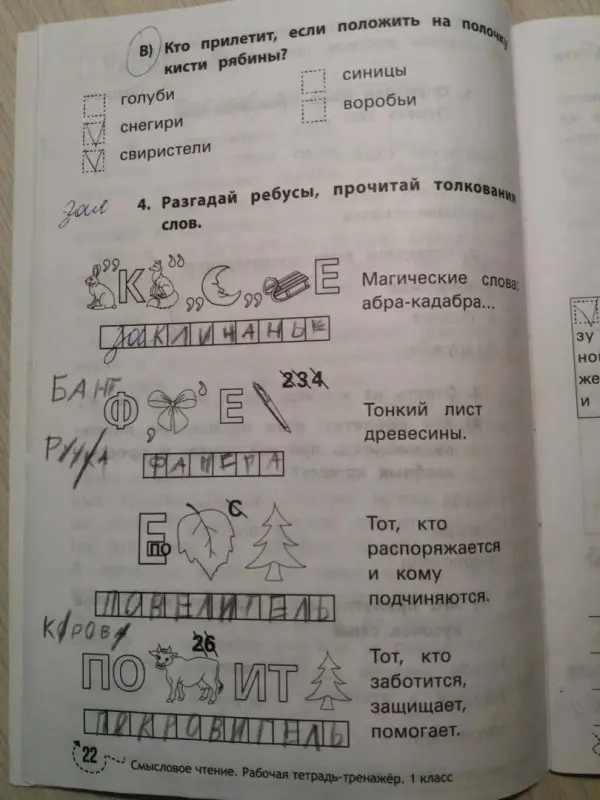 В) Кто прилетит, если положить на полочку
кисти рябины?
голуби
снегири
свиристели
синицы
воробьи
зал
4. Разгадай ребусы, прочитай толкования
слов.
,, К ,, ,, ,, Е
Магические слова:
абра-кадабра...
ЗАКЛИНАНЬЕ
БАНТ
Ф , , Е 234
Тонкий лист
древесины.
РУЧКА
ФАНЕРА
Е по С
Тот, кто
распоряжается
и кому
подчиняются.
ПОВЕЛИТЕЛЬ
КОРОВА
ПО 26 ИТ
Тот, кто
заботится,
защищает,
помогает.
ПОКРОВИТЕЛЬ
22
Смысловое чтение. Рабочая тетрадь-тренажёр. 1 класс
зу
но
же
и